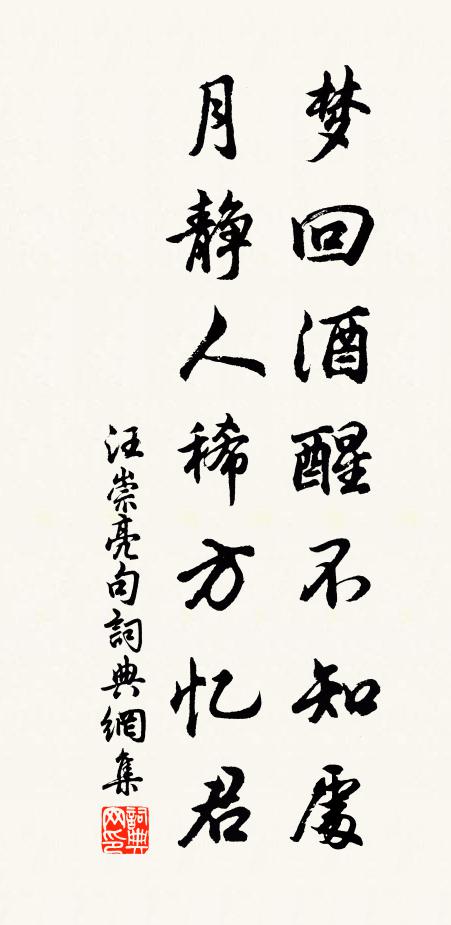 梦回酒醒不知處
月静人稀方忆君
汪崇亮句詞典網集
詞典网印